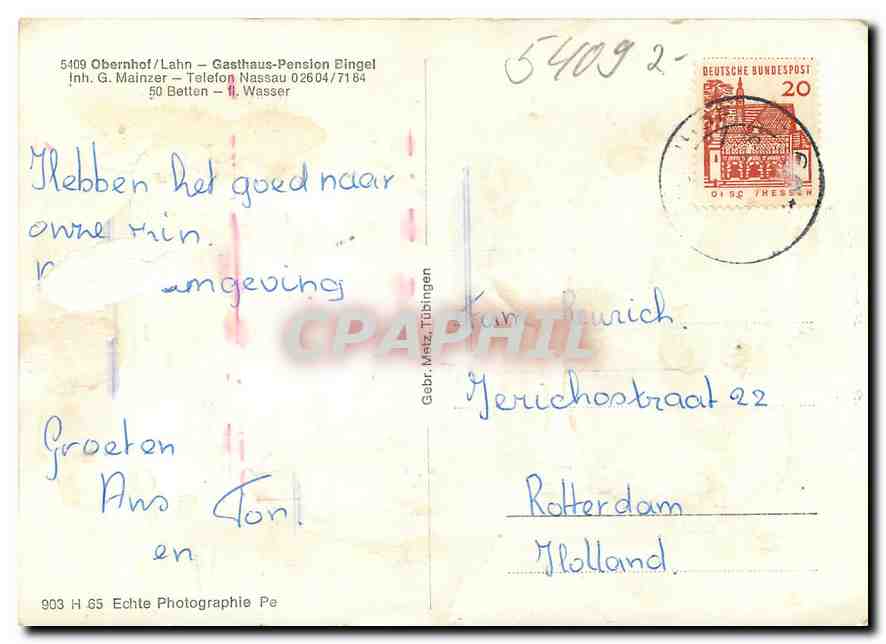 5409 Obernhof/Lahn – Gasthaus-Pension Bingel
Inh. G. Mainzer – Telefon Nassau 02604/7184
50 Betten – fl. Wasser
Hebben het goed naar
onze zin.
omgeving
Groeten
Ans Ton.
en
903 H 65 Echte Photographie Pe
Gebr. Metz, Tübingen
5409 2-
DEUTSCHE BUNDESPOST
20
/HESSEN
Fam.
Jerichostraat 22
Rotterdam
Holland.
CPAPHIL